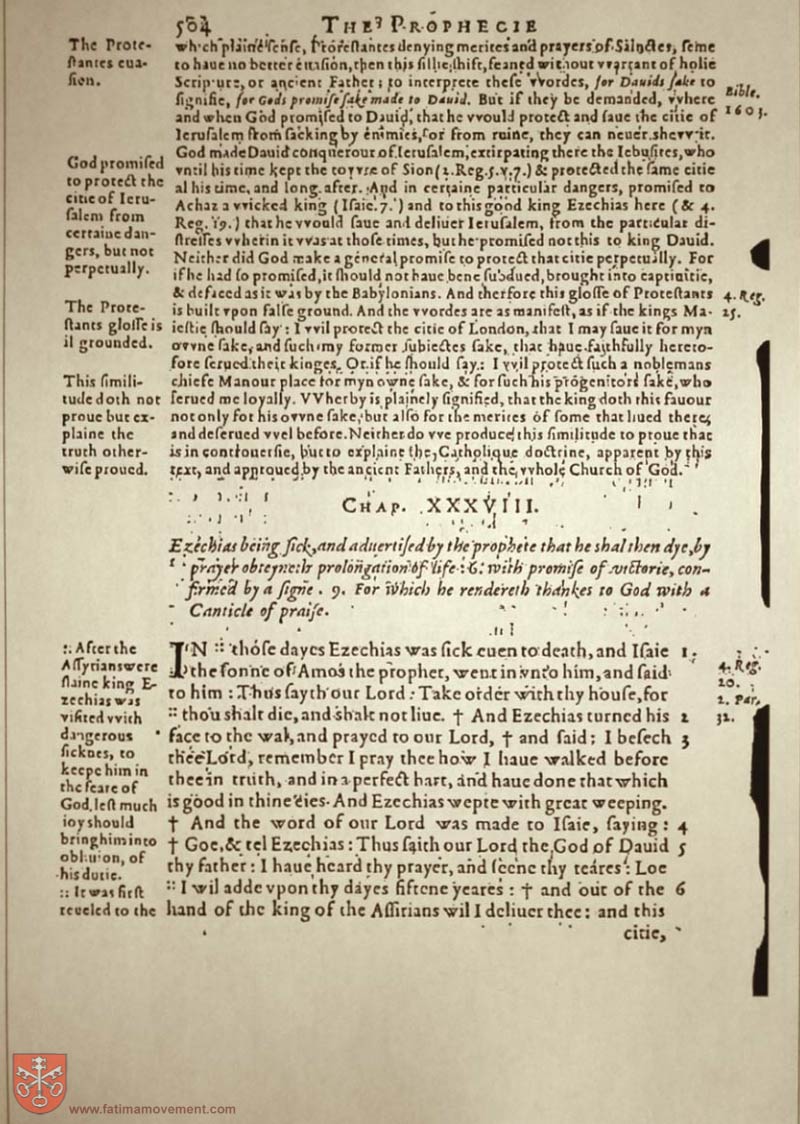 504
THE PROPHECIE
The Prote-
stantes eua-
sion.
which plaine sense, Protestantes denying merites and prayers of Sainctes, seme
to haue no better euasion, then this sillie shift, feaned without vvarrant of holie
Scripture, or ancient Father; to interprete these vvordes, for Dauids sake to
signifie, for Gods promise sake made to Dauid. But if they be demanded, vvhere
and when God promised to Dauid, that he vvould protect and saue the citie of
Ierusalem from sacking by enimies, or from ruine, they can neuer shevv it.
Bible.
1603.
God promised
to protect the
citie of Ieru-
salem from
certaine dan-
gers, but not
perpetually.
God made Dauid conquerour of Ierusalem, extirpating there the Iebusites, who
vntil his time kept the tovvre of Sion (2. Reg. 5. v. 7.) & protected the same citie
al his time, and long after. And in certaine particular dangers, promised to
Achaz a vvicked king (Isaie. 7.) and to this good king Ezechias here (& 4.
Reg. 19.) that he vvould saue and deliuer Ierusalem, from the particular di-
stresses vvherin it vvas at those times, but he promised not this to king Dauid.
Neither did God make a general promise to protect that citie perpetually. For
if he had so promised, it should not haue bene subdued, brought into captiuitie,
& defaced as it was by the Babylonians. And therfore this glosse of Protestants
4. Reg.
25.
The Prote-
stants glosse is
il grounded.
is built vpon false ground. And the vvordes are as manifest, as if the kings Ma-
iestie should say: I vvil protect the citie of London, that I may saue it for myn
ovvne sake, and such my former subiectes sake, that haue faithfully hereto-
fore serued their kinges. Or if he should say: I vvil protect such a noblemans
This simili-
tude doth not
proue but ex-
plaine the
truth other-
wise proued.
chiefe Manour place for myn owne sake, & for such his progenitors sake, who
serued me loyally. VVherby is plainely signified, that the king doth this fauour
not only for his ovvne sake, but also for the merites of some that liued there,
and deserued vvel before. Neither do vve produce this similitude to proue that
is in controuersie, but to explaine the Catholique doctrine, apparent by this
text, and approued by the ancient Fathers, and the vvhole Church of God.
CHAP. XXXVIII.
Ezechias being sick, and aduertised by the prophete that he shal then dye, by
prayer obteyneth prolongation of life: 6. with promise of victorie, con-
firmed by a signe. 9. For which he rendereth thankes to God with a
Canticle of praise.
:: After the
Assyrians were
slaine king E-
zechias was
visited vvith
dangerous
sicknes, to
keepe him in
the feare of
God, lest much
ioy should
bring him into
obliuion, of
his dutie.
:: It was first
reueled to the
IN :: those dayes Ezechias was sick euen to death, and Isaie 1.
the sonne of Amos the prophet, went in vnto him, and said
to him: Thus sayth our Lord: Take order with thy house, for
:: thou shalt die, and shalt not liue. † And Ezechias turned his 2
face to the wal, and prayed to our Lord, † and said; I besech 3
thee Lord, remember I pray thee how I haue walked before
thee in truth, and in a perfect hart, and haue done that which
is good in thine eies. And Ezechias wepte with great weeping.
† And the word of our Lord was made to Isaie, saying: 4
† Goe, & tel Ezechias: Thus saith our Lord the God of Dauid 5
thy father: I haue heard thy prayer, and seene thy teares: Loe
:: I wil adde vpon thy dayes fiftene yeares: † and out of the 6
hand of the king of the Assirians wil I deliuer thee: and this
4. Reg.
20.
2. Par.
32.
citie,
www.fatimamovement.com